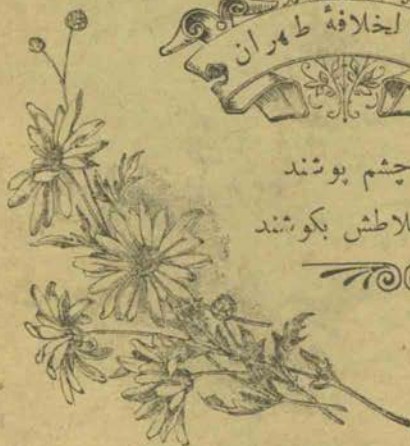 لخلافهٔ طهران
چشم پوشند
لاطش بکوشند